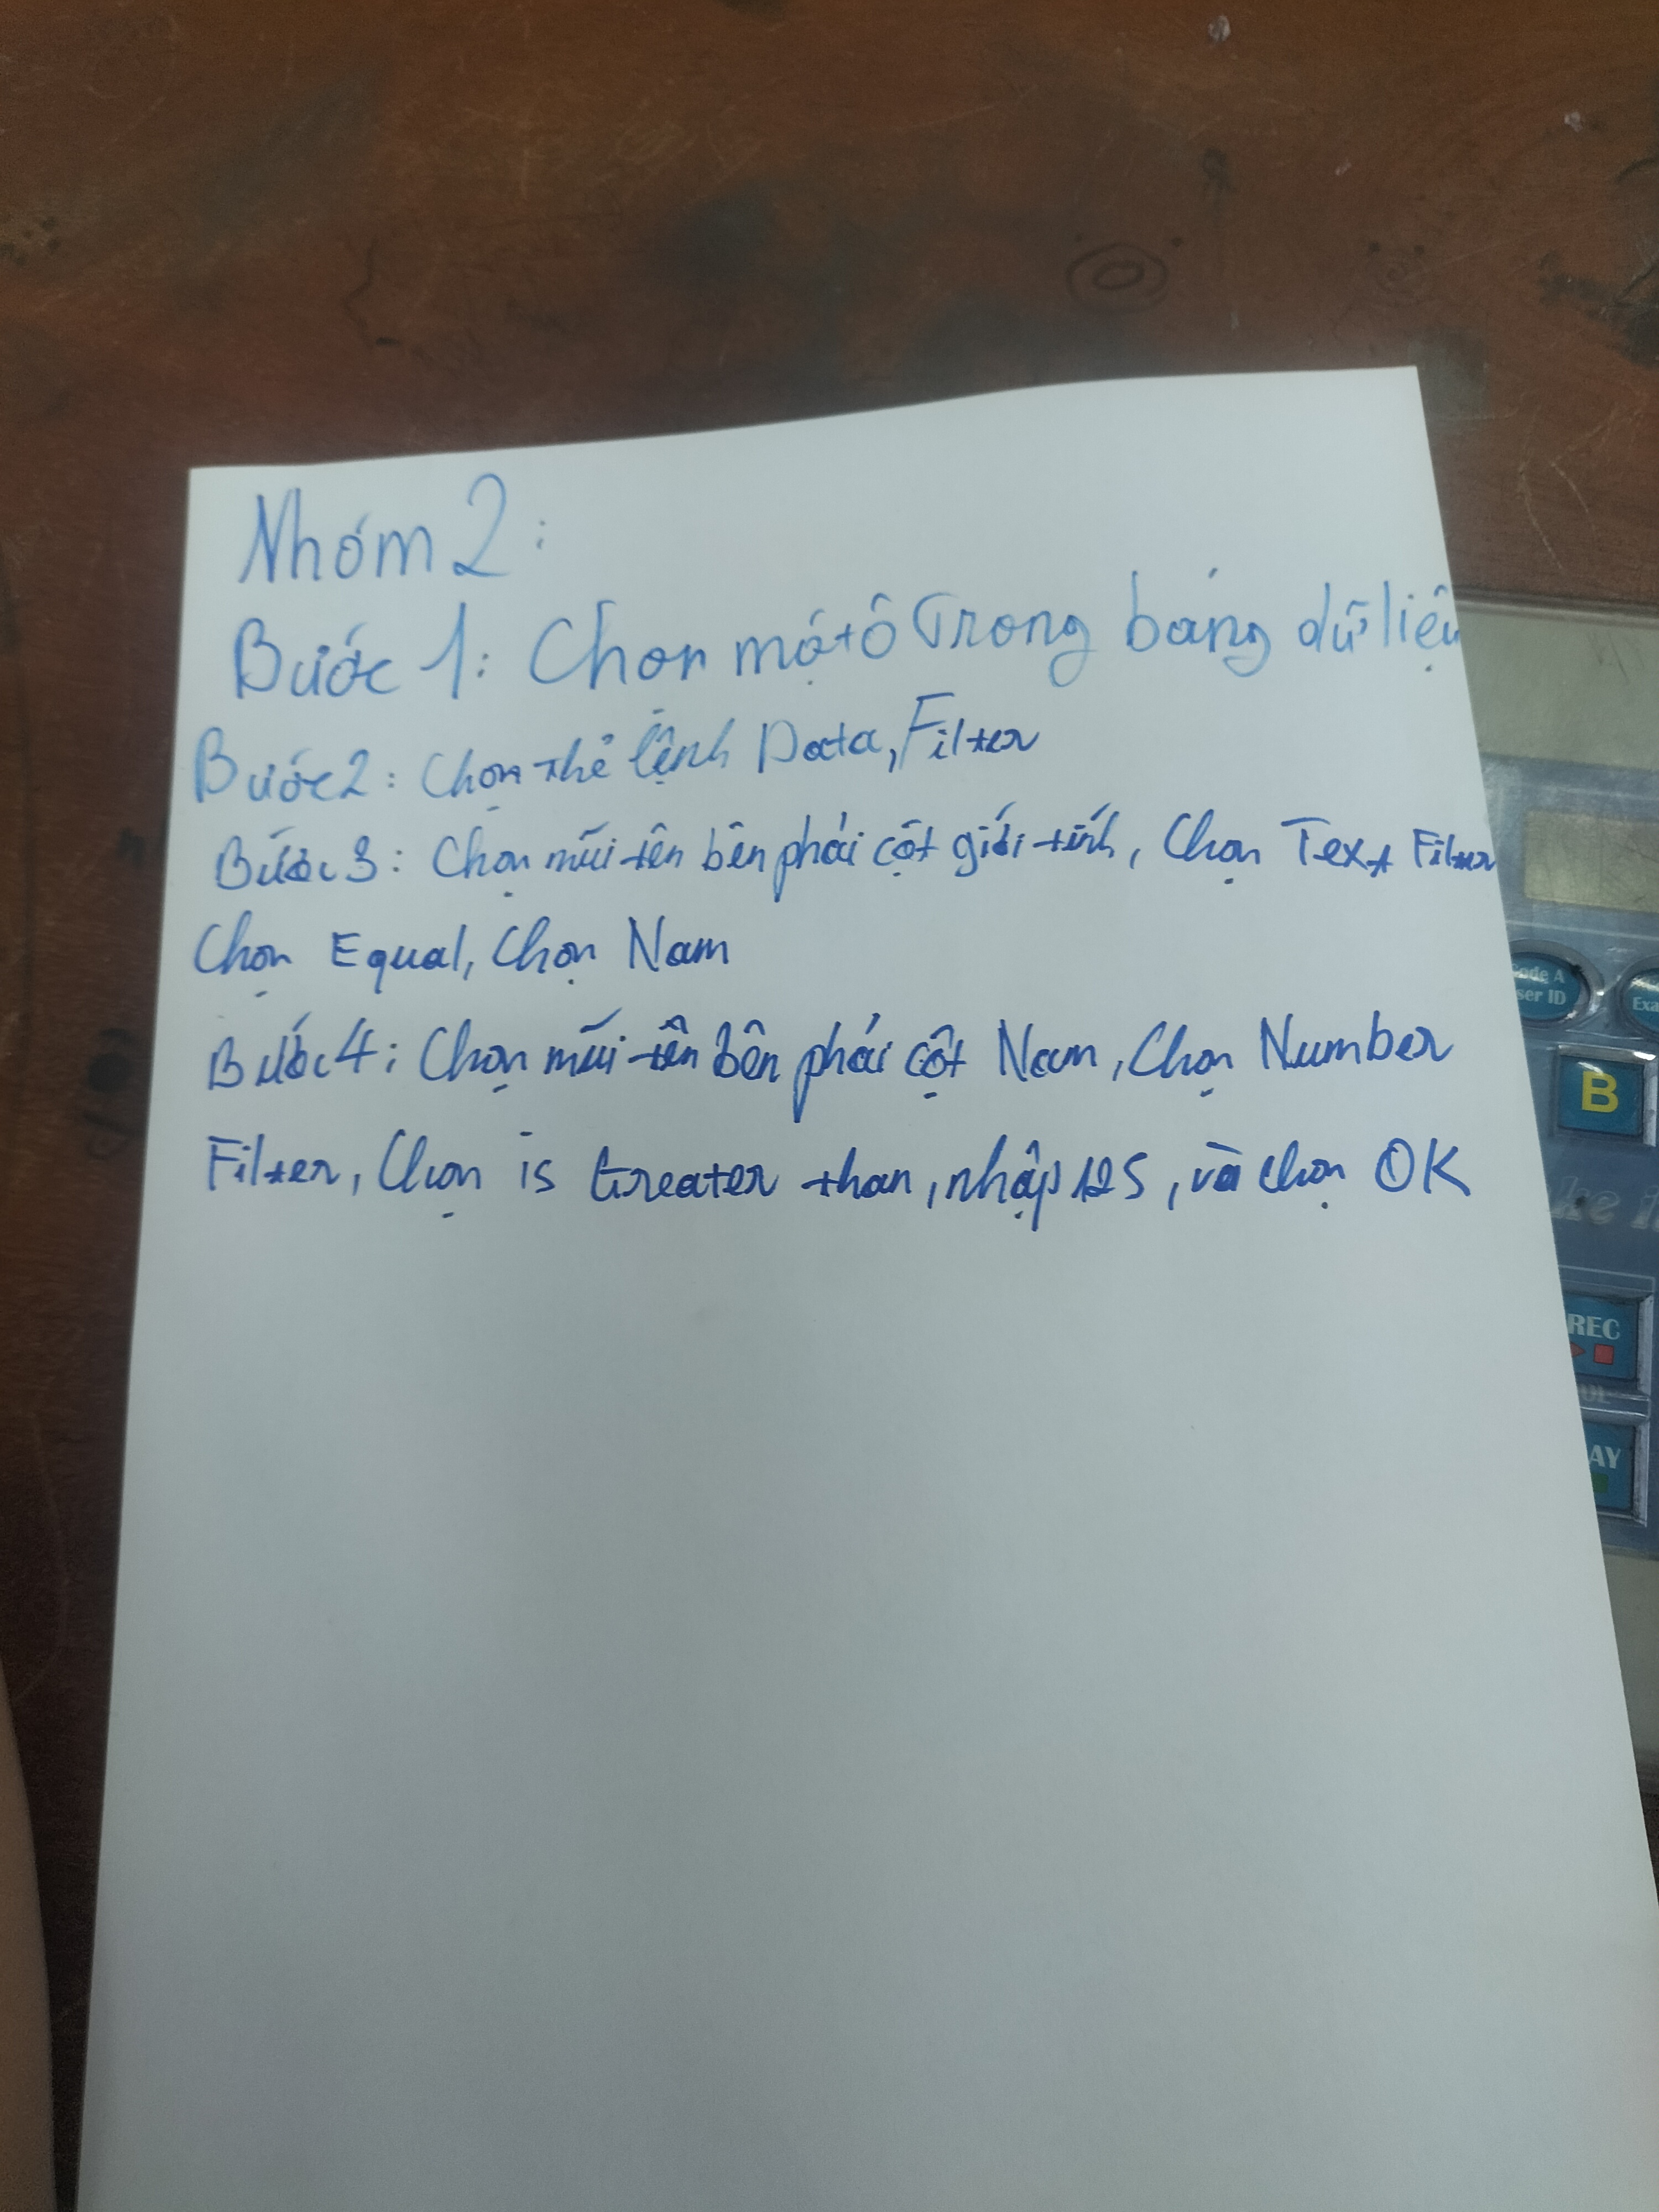 Nhóm 2:
Bước 1: Chọn một ô Trong bảng dữ liệu
Bước 2: Chọn thẻ lệnh Data, Filter
Bước 3: Chọn mũi tên bên phải cột giới tính, Chọn Text Filter
Chọn Equal, Chọn Nam
Bước 4: Chọn mũi tên bên phải cột Nam, Chọn Number
Filter, Chọn is Greater than, nhập 125, và chọn OK
ode A
ser ID
Exa
B
ke i
REC
OL
AY